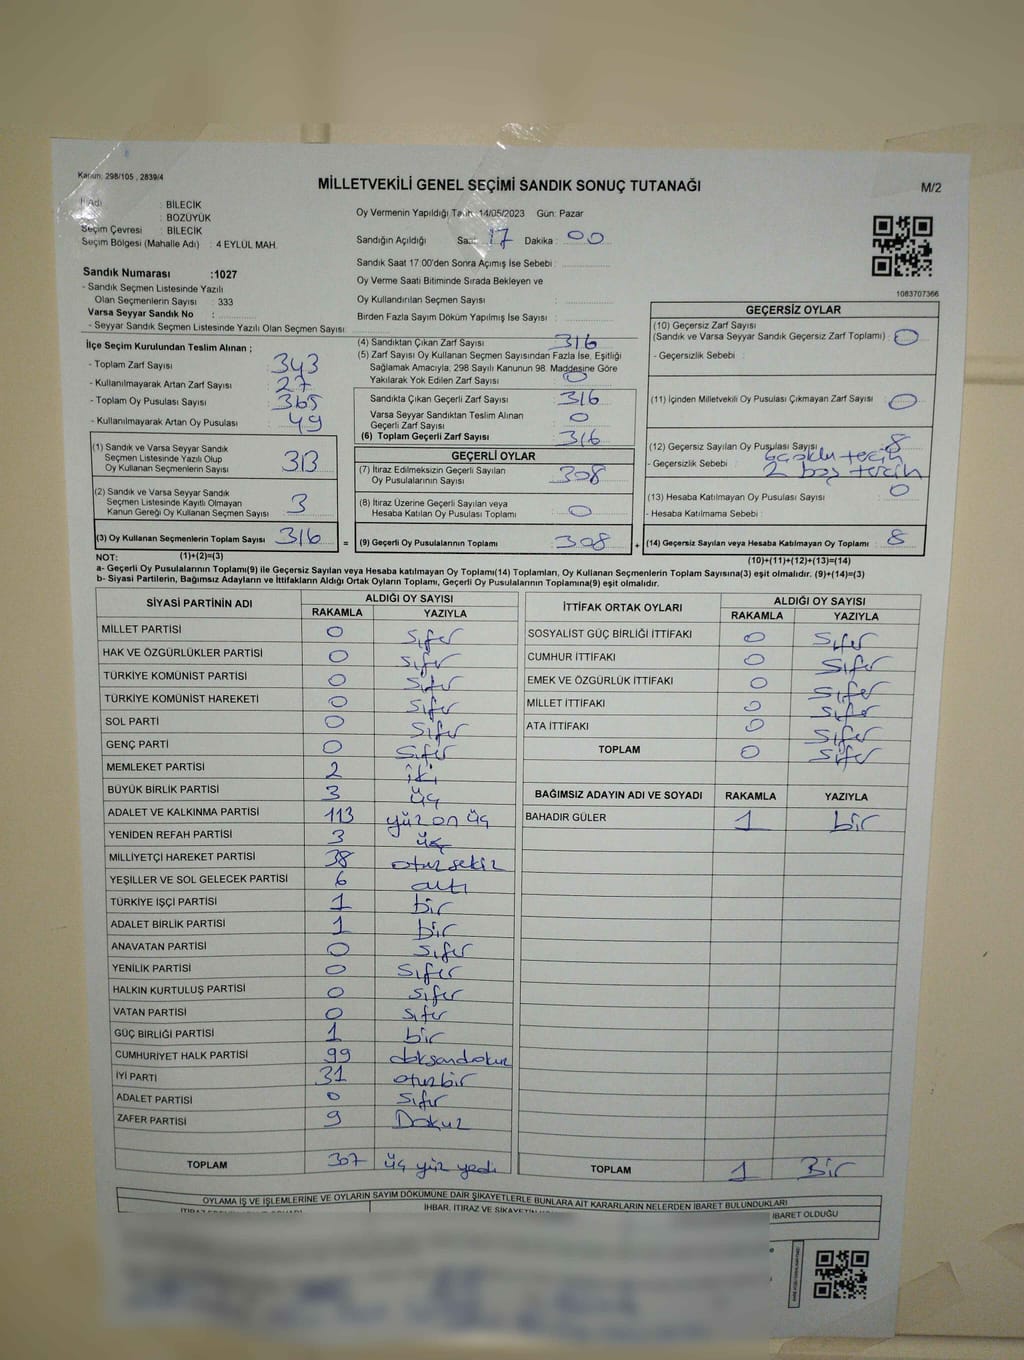 Kanun: 298/105 , 2839/4
MİLLETVEKİLİ GENEL SEÇİMİ SANDIK SONUÇ TUTANAĞI
M/2
İl Adı : BİLECİK
: BOZÜYÜK
Seçim Çevresi : BİLECİK
Seçim Bölgesi (Mahalle Adı) : 4 EYLÜL MAH.
Sandık Numarası :1027
- Sandık Seçmen Listesinde Yazılı
Olan Seçmenlerin Sayısı : 333
Varsa Seyyar Sandık No :
- Seyyar Sandık Seçmen Listesinde Yazılı Olan Seçmen Sayısı:
Oy Vermenin Yapıldığı Tarih: 14/05/2023 Gün: Pazar
Sandığın Açıldığı Saat : 17 Dakika : 00
Sandık Saat 17:00'den Sonra Açımış İse Sebebi :
Oy Verme Saati Bitiminde Sırada Bekleyen ve
Oy Kullandırılan Seçmen Sayısı :
Birden Fazla Sayım Döküm Yapılmış İse Sayısı :
1083707366
İlçe Seçim Kurulundan Teslim Alınan ;
- Toplam Zarf Sayısı : 343
- Kullanılmayarak Artan Zarf Sayısı : 27
- Toplam Oy Pusulası Sayısı : 365
- Kullanılmayarak Artan Oy Pusulası : 49
(1) Sandık ve Varsa Seyyar Sandık
Seçmen Listesinde Yazılı Olup
Oy Kullanan Seçmenlerin Sayısı : 313
(2) Sandık ve Varsa Seyyar Sandık
Seçmen Listesinde Kayıtlı Olmayan
Kanun Gereği Oy Kullanan Seçmen Sayısı : 3
(3) Oy Kullanan Seçmenlerin Toplam Sayısı : 316
(4) Sandıktan Çıkan Zarf Sayısı : 316
(5) Zarf Sayısı Oy Kullanan Seçmen Sayısından Fazla İse, Eşitliği
Sağlamak Amacıyla, 298 Sayılı Kanunun 98. Maddesine Göre
Yakılarak Yok Edilen Zarf Sayısı : 0
Sandıkta Çıkan Geçerli Zarf Sayısı : 316
Varsa Seyyar Sandıktan Teslim Alınan
Geçerli Zarf Sayısı : 0
(6) Toplam Geçerli Zarf Sayısı : 316
GEÇERLİ OYLAR
(7) İtiraz Edilmeksizin Geçerli Sayılan
Oy Pusulalarının Sayısı : 308
(8) İtiraz Üzerine Geçerli Sayılan veya
Hesaba Katılan Oy Pusulası Toplamı : 0
= (9) Geçerli Oy Pusulalarının Toplamı : 308
GEÇERSİZ OYLAR
(10) Geçersiz Zarf Sayısı
(Sandık ve Varsa Seyyar Sandık Geçersiz Zarf Toplamı) : 0
- Geçersizlik Sebebi :
(11) İçinden Milletvekili Oy Pusulası Çıkmayan Zarf Sayısı : 0
(12) Geçersiz Sayılan Oy Pusulası Sayısı : 8
- Geçersizlik Sebebi : 6 çoklu tercih
2 boş tercih
(13) Hesaba Katılmayan Oy Pusulası Sayısı : 0
- Hesaba Katılmama Sebebi :
+ (14) Geçersiz Sayılan veya Hesaba Katılmayan Oy Toplamı : 8
NOT: (1)+(2)=(3)
(10)+(11)+(12)+(13)=(14)
a- Geçerli Oy Pusulalarının Toplamı(9) ile Geçersiz Sayılan veya Hesaba katılmayan Oy Toplamı(14) Toplamları, Oy Kullanan Seçmenlerin Toplam Sayısına(3) eşit olmalıdır. (9)+(14)=(3)
b- Siyasi Partilerin, Bağımsız Adayların ve İttifakların Aldığı Ortak Oyların Toplamı, Geçerli Oy Pusulalarının Toplamına(9) eşit olmalıdır.
SİYASİ PARTİNİN ADI ALDIĞI OY SAYISI
RAKAMLA YAZIYLA
MİLLET PARTİSİ 0 sıfır
HAK VE ÖZGÜRLÜKLER PARTİSİ 0 sıfır
TÜRKİYE KOMÜNİST PARTİSİ 0 sıfır
TÜRKİYE KOMÜNİST HAREKETİ 0 sıfır
SOL PARTİ 0 sıfır
GENÇ PARTİ 0 sıfır
MEMLEKET PARTİSİ 2 iki
BÜYÜK BİRLİK PARTİSİ 3 üç
ADALET VE KALKINMA PARTİSİ 113 yüz on üç
YENİDEN REFAH PARTİSİ 3 üç
MİLLİYETÇİ HAREKET PARTİSİ 38 otuzsekiz
YEŞİLLER VE SOL GELECEK PARTİSİ 6 altı
TÜRKİYE İŞÇİ PARTİSİ 1 bir
ADALET BİRLİK PARTİSİ 1 bir
ANAVATAN PARTİSİ 0 sıfır
YENİLİK PARTİSİ 0 sıfır
HALKIN KURTULUŞ PARTİSİ 0 sıfır
VATAN PARTİSİ 0 sıfır
GÜÇ BİRLİĞİ PARTİSİ 1 bir
CUMHURİYET HALK PARTİSİ 99 doksandokuz
İYİ PARTİ 31 otuzbir
ADALET PARTİSİ 0 sıfır
ZAFER PARTİSİ 9 Dokuz
TOPLAM 307 üç yüz yedi
İTTİFAK ORTAK OYLARI ALDIĞI OY SAYISI
RAKAMLA YAZIYLA
SOSYALİST GÜÇ BİRLİĞİ İTTİFAKI 0 sıfır
CUMHUR İTTİFAKI 0 sıfır
EMEK VE ÖZGÜRLÜK İTTİFAKI 0 sıfır
MİLLET İTTİFAKI 0 sıfır
ATA İTTİFAKI 0 sıfır
TOPLAM 0 sıfır
BAĞIMSIZ ADAYIN ADI VE SOYADI RAKAMLA YAZIYLA
BAHADIR GÜLER 1 bir
TOPLAM 1 Bir
OYLAMA İŞ VE İŞLEMLERİNE VE OYLARIN SAYIM DÖKÜMÜNE DAİR ŞİKAYETLERLE BUNLARA AİT KARARLARIN NELERDEN İBARET BULUNDUKLARI
İHBAR, İTİRAZ VE ŞİKAYETİN
İBARET OLDUĞU